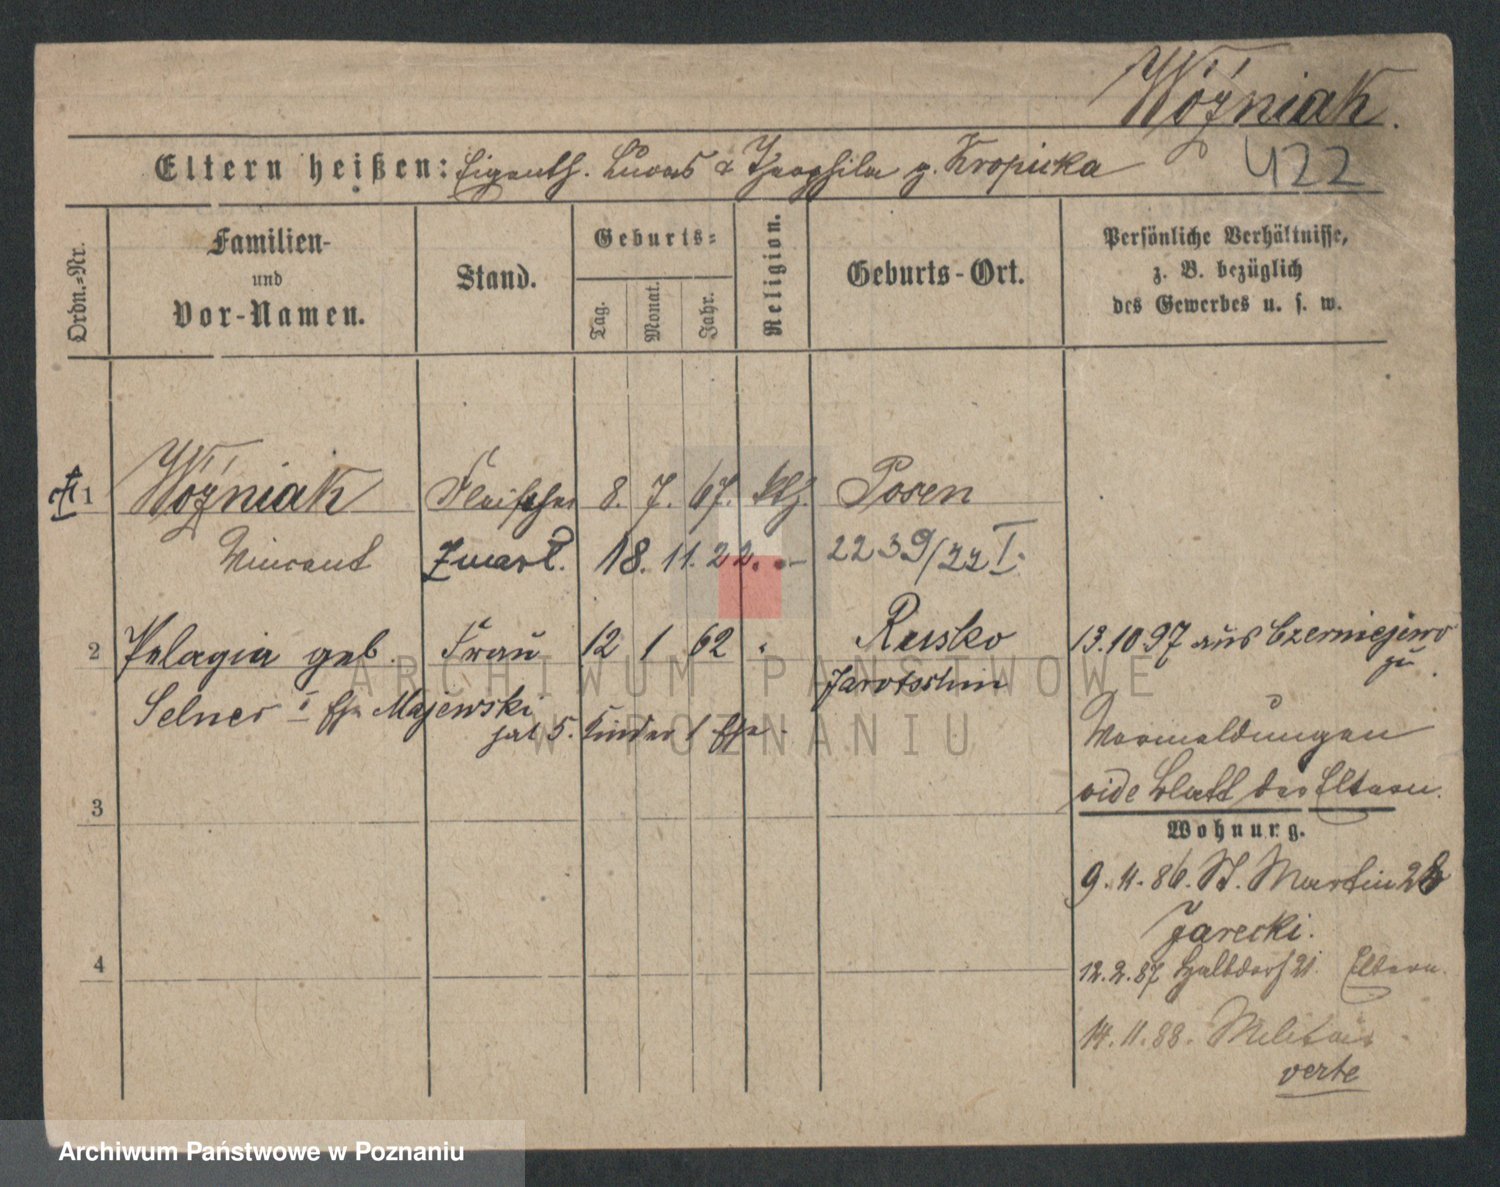 Woźniak.
Eltern heißen: Eigenth. Lucas & Theophila g. Kropicka
422
Ordn.=Nr.
Familien-
und
Vor-Namen.
Stand.
Geburts=
Tag.
Monat.
Jahr.
Religion.
Geburts-Ort.
Persönliche Verhältnisse,
z. B. bezüglich
des Gewerbes u. s. w.
1 Woźniak Fleischer 8. 7. 67. kth. Posen
Vincent Zmarł. 18. 11. 22. - 2239/22 I.
2 Pelagia geb. Frau 12 1 62 Rusko 13.10.97 aus Czerniejewo
zu
Jarotschin
Selner I Ehe Majewski
hat 5. Kinder I Ehe.
Vormeldungen
vide Blatt der Eltern.
3
Wohnung.
9. 11. 86. St. Martin 28
Jarecki.
4
12. 2. 87 Halbdorf 21. Eltern.
14. 11. 88. Militair
verte
ARCHIWUM PAŃSTWOWE
W POZNANIU
Archiwum Państwowe w Poznaniu